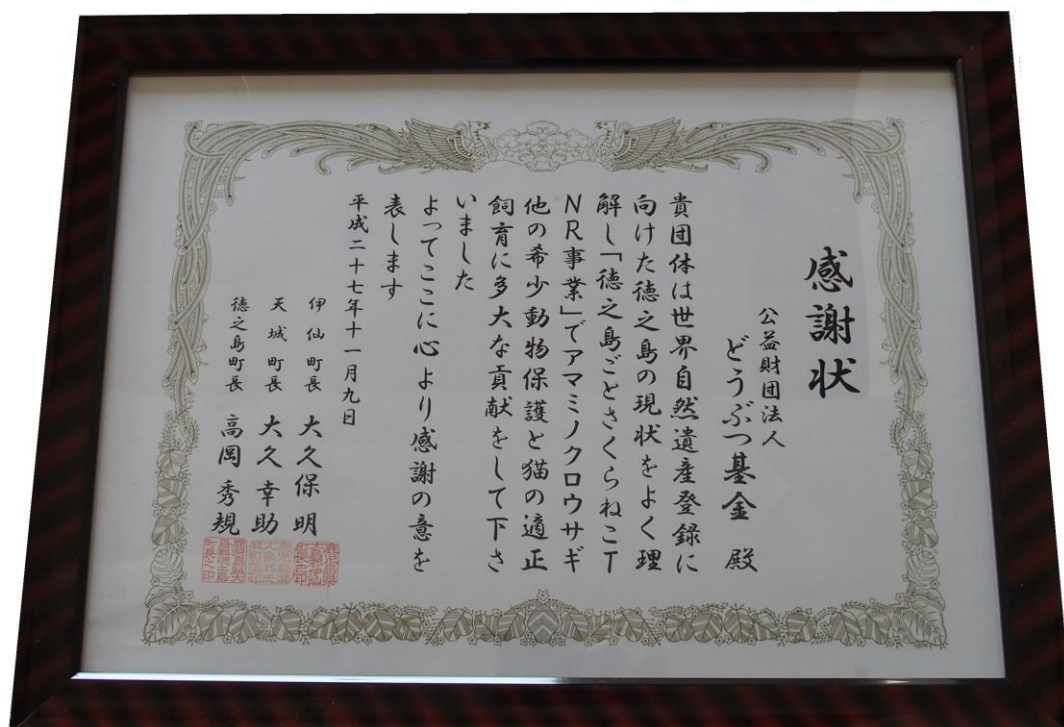 感謝状
公益財団法人
どうぶつ基金 殿
貴団体は世界自然遺産登録に
向けた徳之島の現状をよく理
解し「徳之島ごとさくらねこT
NR事業」でアマミノクロウサギ
他の希少動物保護と猫の適正
飼育に多大な貢献をして下さ
いました
よってここに心より感謝の意を
表します
平成二十七年十一月九日
伊仙町長 大久保明
天城町長 大久幸助
徳之島町長 高岡秀規